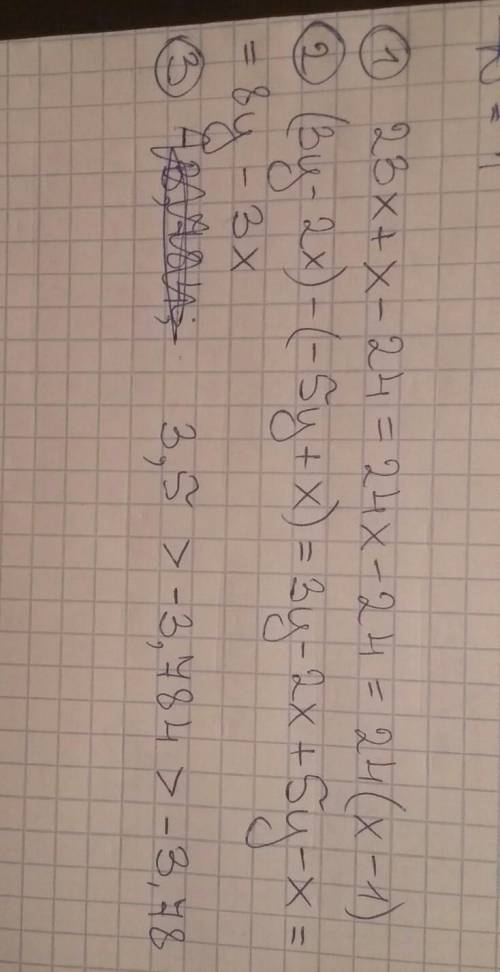 ① 23x + x - 24 = 24x - 24 = 24(x - 1)
② (3y - 2x) - (-5y + x) = 3y - 2x + 5y - x =
= 8y - 3x
③ 3,5 > -3,484 > -3,48